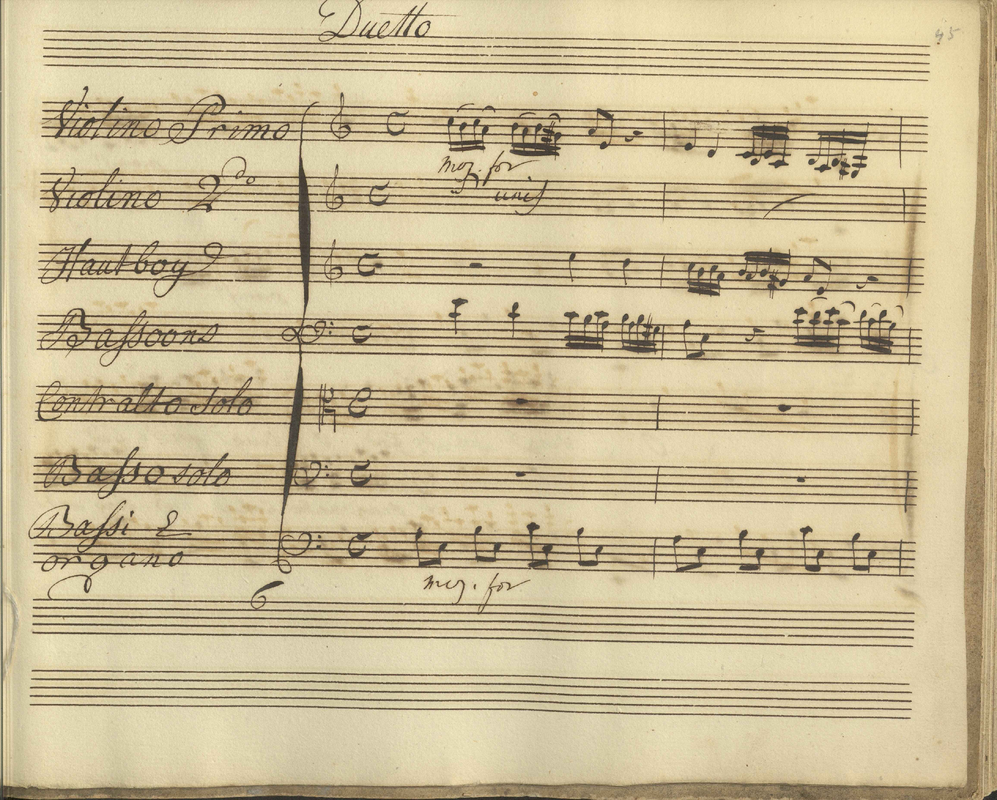 Duetto
45
Violino Primo
moz. for
Violino 2do
unis
Hautboy
Bassoons
Contralto solo
Basso solo
Bassi &
organo
moz. for
6